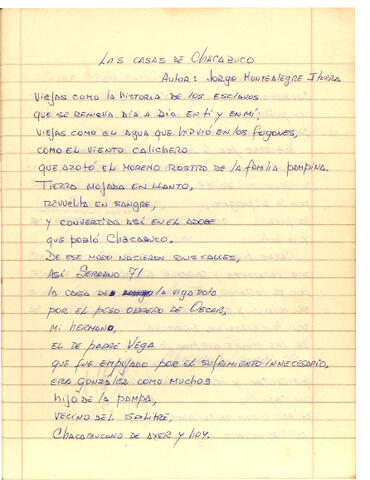 LAS CASAS DE CHACABUCO
Autor: Jorge Montealegre Iturra
Viejas como la historia de los esclavos
que se remoja día a día en ti y en mí;
viejas como el agua que hirvió en los fogones,
como el viento calichero
que azotó el moreno rostro de la familia pampina.
Tierra mojada en llanto,
revuelta en sangre,
y convertida así en el adobe
que pobló Chacabuco.
De ese modo nacieron sus calles,
Así Serrano 71
la casa de la viga roto
por el peso obrero de Oscar,
mi hermano,
el de padre Vega
que fue empujado por el sufrimiento innecesario,
era González como muchos
hijo de la pampa,
vecino del salitre,
Chacabucano de ayer y hoy.